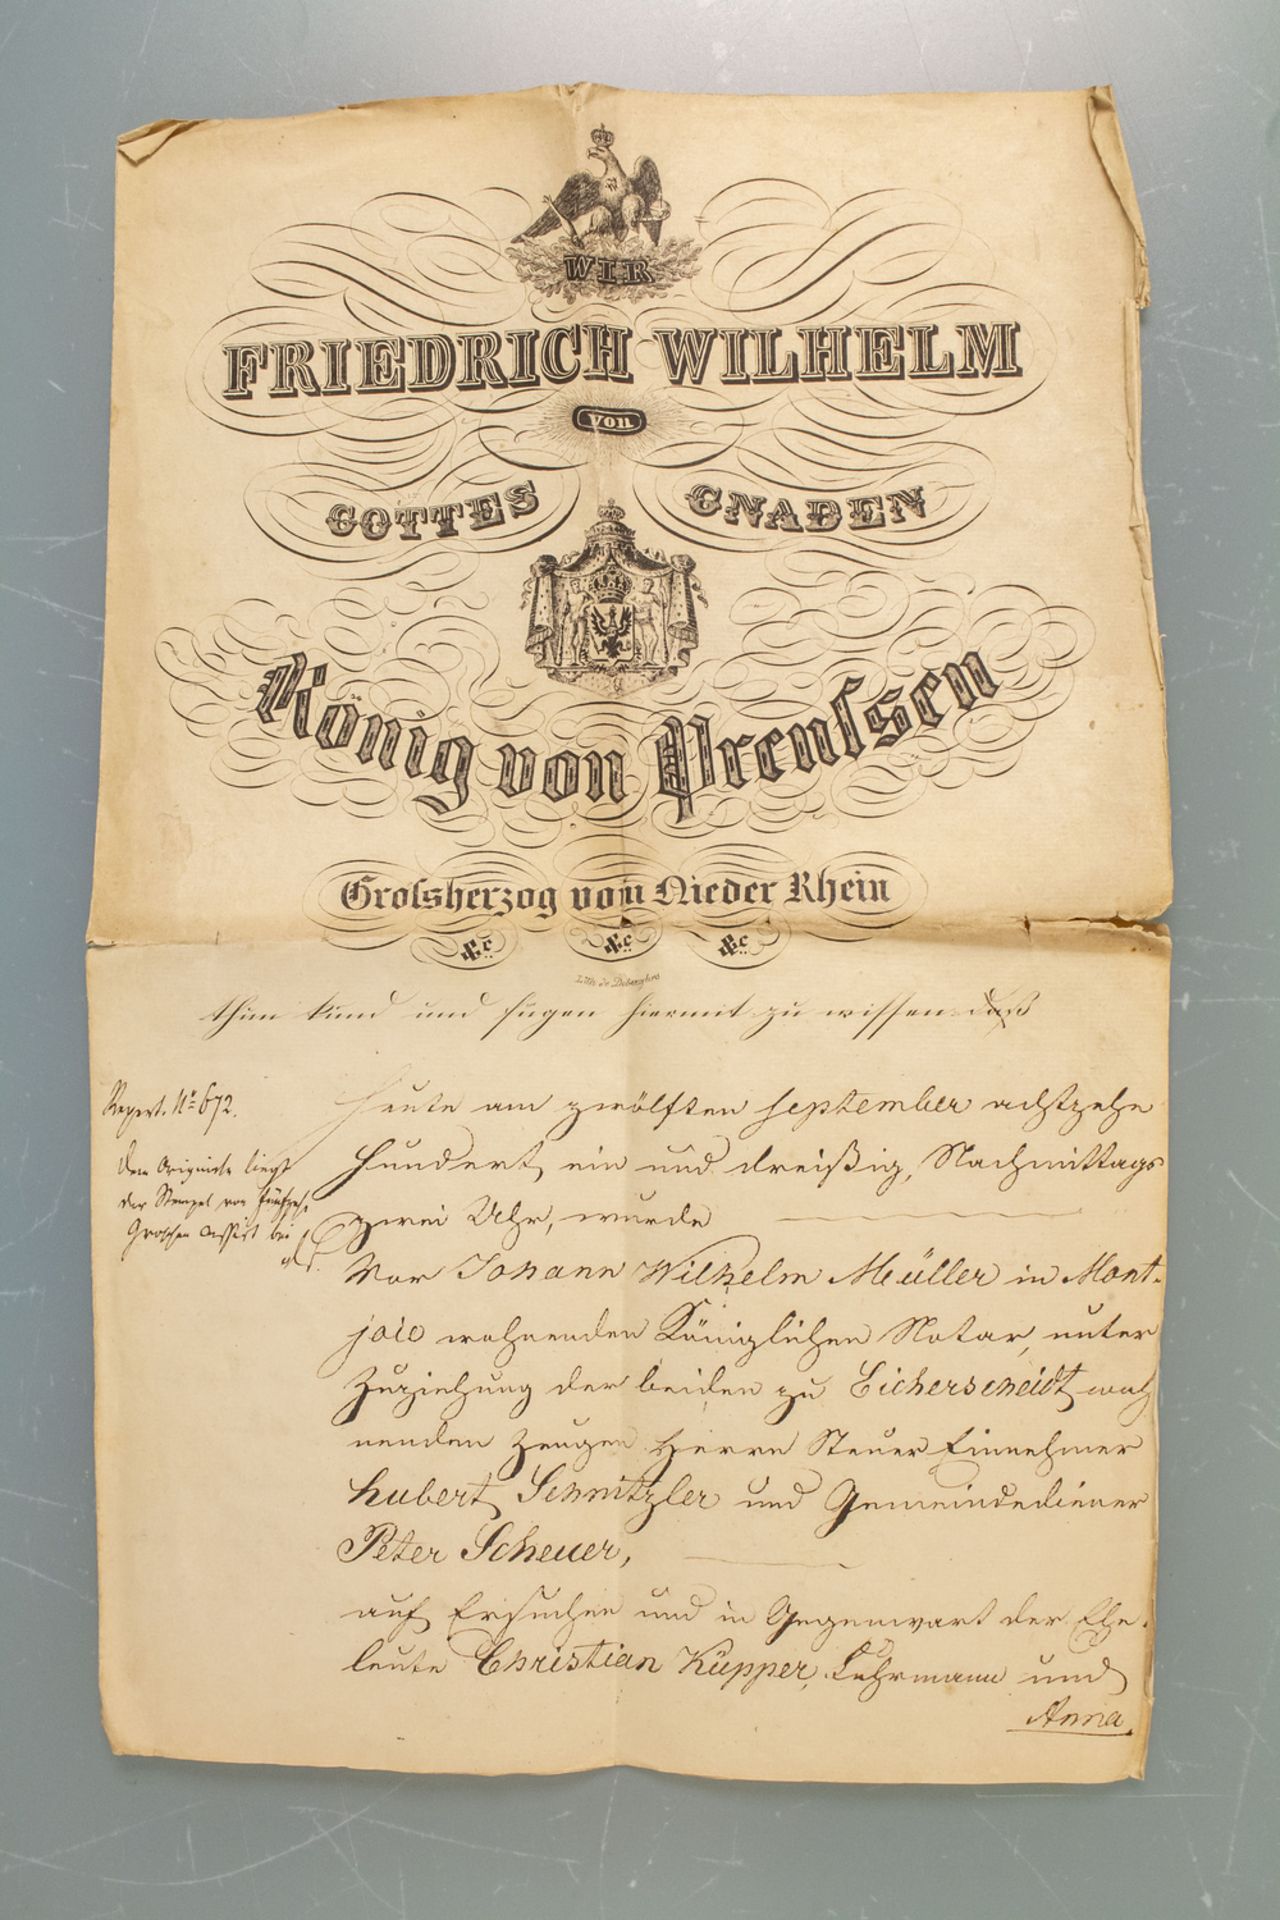 WIR
FRIEDRICH WILHELM
von
GOTTES GNADEN
König von Preuſsen
Groſsherzog vom Nieder Rhein
&c &c &c
Lith. de
thun kund und fügen hiermit zu wissen daß
Repert. No 672.
Dem Originale liegt
der Stempel von fünfzehn
Groschen Cassirt bei
heute am zwölften September achtzehn
hundert ein und dreißig, Nachmittags
zwei Uhr, wurde
Vor Johann Wilhelm Müller in Mont-
joie wohnenden Königlichen Notar, unter
Zuziehung der beiden zu Eicherscheidt woh
nenden Zeugen Herrn Steuer Einnehmer
Hubert Schnitzler und Gemeindediener
Peter Scheuer,
auf Ersuchen und in Gegenwart der Ehe-
leute Christian Küpper, Fuhrmann und
Anna